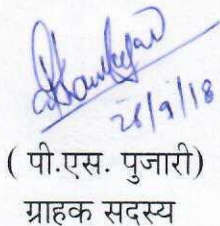 28/9/18
( पी.एस. पुजारी)
ग्राहक सदस्य